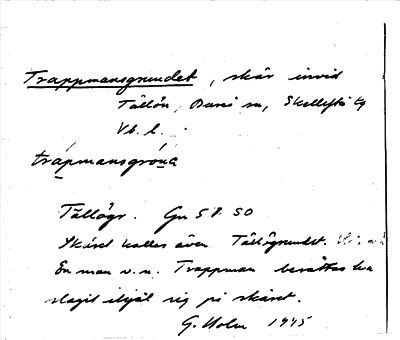 Trappmansgrundet, skär invid
Tällön, Bureå sn, Skellefteå tg
Vb. l.
trápmansgróna
Tällögr. Gn 58 50
Skäret kallas även Tällögrundet.
En man v. n. Trappman berättas ha
slagit ihjäl sig på skäret.
G. Holm 1945